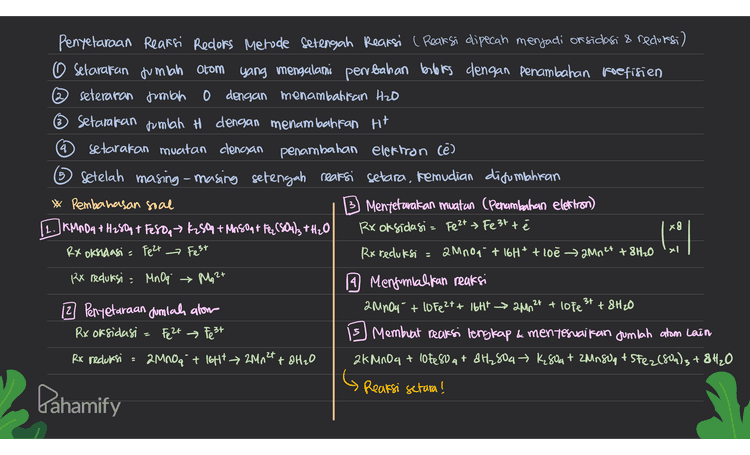 Penyetaraan Reaksi Redoks Metode Setengah Reaksi (Reaksi dipecah menjadi oksidasi & reduksi)
① Setarakan jumlah atom yang mengalami perubahan biloks dengan penambahan koefisien
② setarakan jumlah O dengan menambahkan H₂O
③ Setarakan jumlah H dengan menambahkan H⁺
④ setarakan muatan dengan penambahan elektron (ē)
⑤ Setelah masing-masing setengah reaksi setara, kemudian dijumlahkan
※ Pembahasan soal
1. KMnO₄ + H₂SO₄ + FeSO₄ → K₂SO₄ + MnSO₄ + Fe₂(SO₄)₃ + H₂O
Rx oksidasi = Fe²⁺ → Fe³⁺
Rx reduksi : MnO₄⁻ → Mn²⁺
2 Penyetaraan jumlah atom
Rx oksidasi = Fe²⁺ → Fe³⁺
Rx reduksi = 2MnO₄⁻ + 16H⁺ → 2Mn²⁺ + 8H₂O
3 Menyetarakan muatan (Penambahan elektron)
Rx oksidasi = Fe²⁺ → Fe³⁺ + ē | x8 |
Rx reduksi = 2MnO₄⁻ + 16H⁺ + 10ē → 2Mn²⁺ + 8H₂O | x1 |
4 Menjumlahkan reaksi
2MnO₄⁻ + 10Fe²⁺ + 16H⁺ → 2Mn²⁺ + 10Fe³⁺ + 8H₂O
5 Membuat reaksi lengkap & menyesuaikan jumlah atom lain
2KMnO₄ + 10FeSO₄ + 8H₂SO₄ → K₂SO₄ + 2MnSO₄ + 5Fe₂(SO₄)₃ + 8H₂O
↳ Reaksi setara!
Pahamify